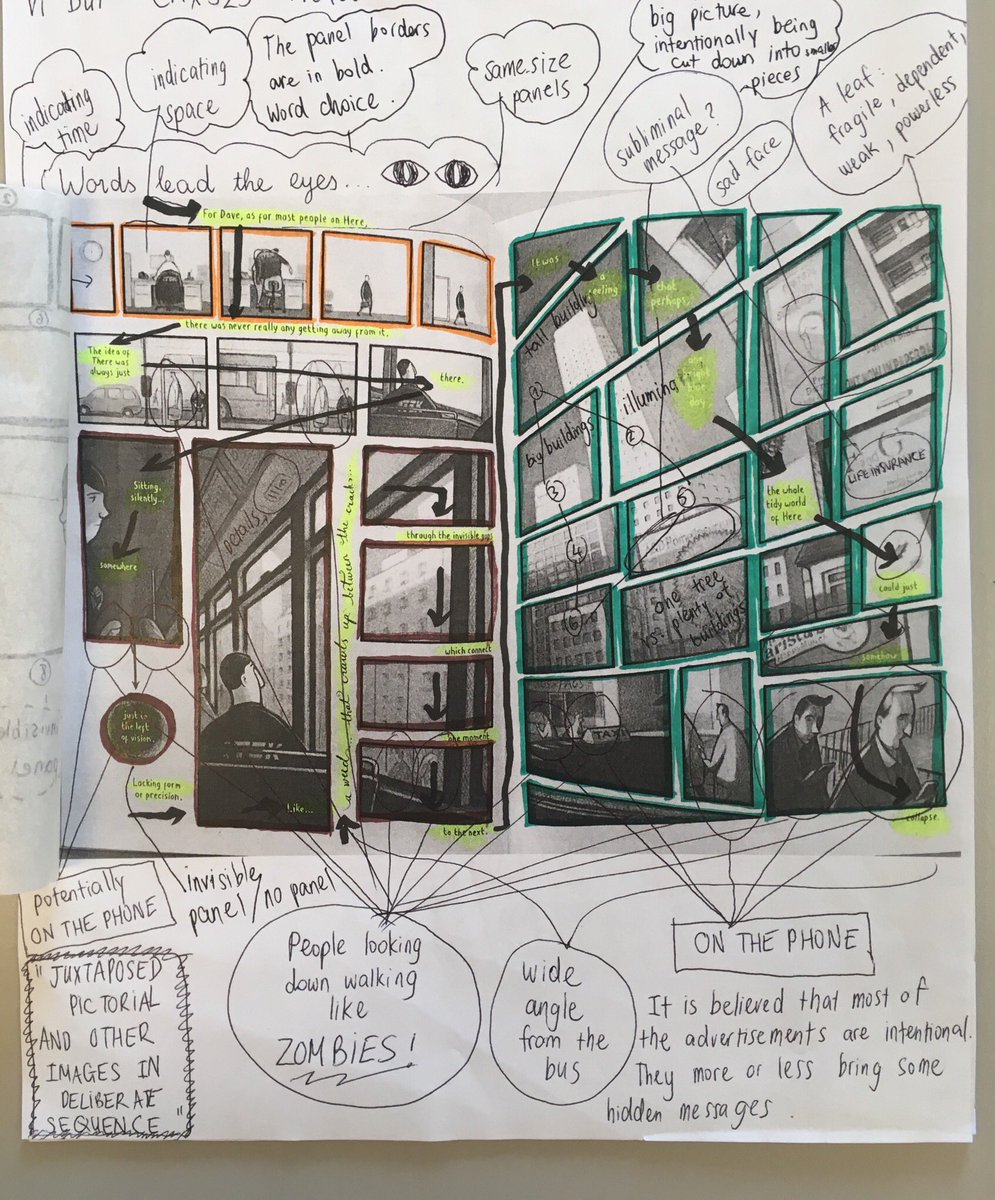 indicating
time
indicating
space
The panel borders
are in bold.
Word choice.
same size
panels
big picture,
intentionally being
cut down into smaller
pieces
subliminal
message?
sad face
A leaf:
fragile, dependent,
weak, powerless
Words lead the eyes...
For Dave, as for most people on Here,
there was never really any getting away from it.
The idea of
There was
always just
there.
Sitting,
silently...
somewhere
just to
the left
of vision.
Lacking form
or precision.
Like...
a weed... that crawls up between the cracks...
through the invisible gaps
which connect
one moment
to the next.
It was
a
feeling
that
perhaps,
one
day
the whole
tidy world
of Here
could just
somehow
collapse.
tall building
big buildings
1
2
3
4
5
6
one tree
vs. plenty of
buildings
LIFE INSURANCE
TAXI
potentially
ON THE PHONE
invisible
panel/no panel
"JUXTAPOSED
PICTORIAL
AND OTHER
IMAGES IN
DELIBERATE
SEQUENCE"
People looking
down walking
like
ZOMBIES!
wide
angle
from the
bus
ON THE PHONE
It is believed that most of
the advertisements are intentional.
They more or less bring some
hidden messages.